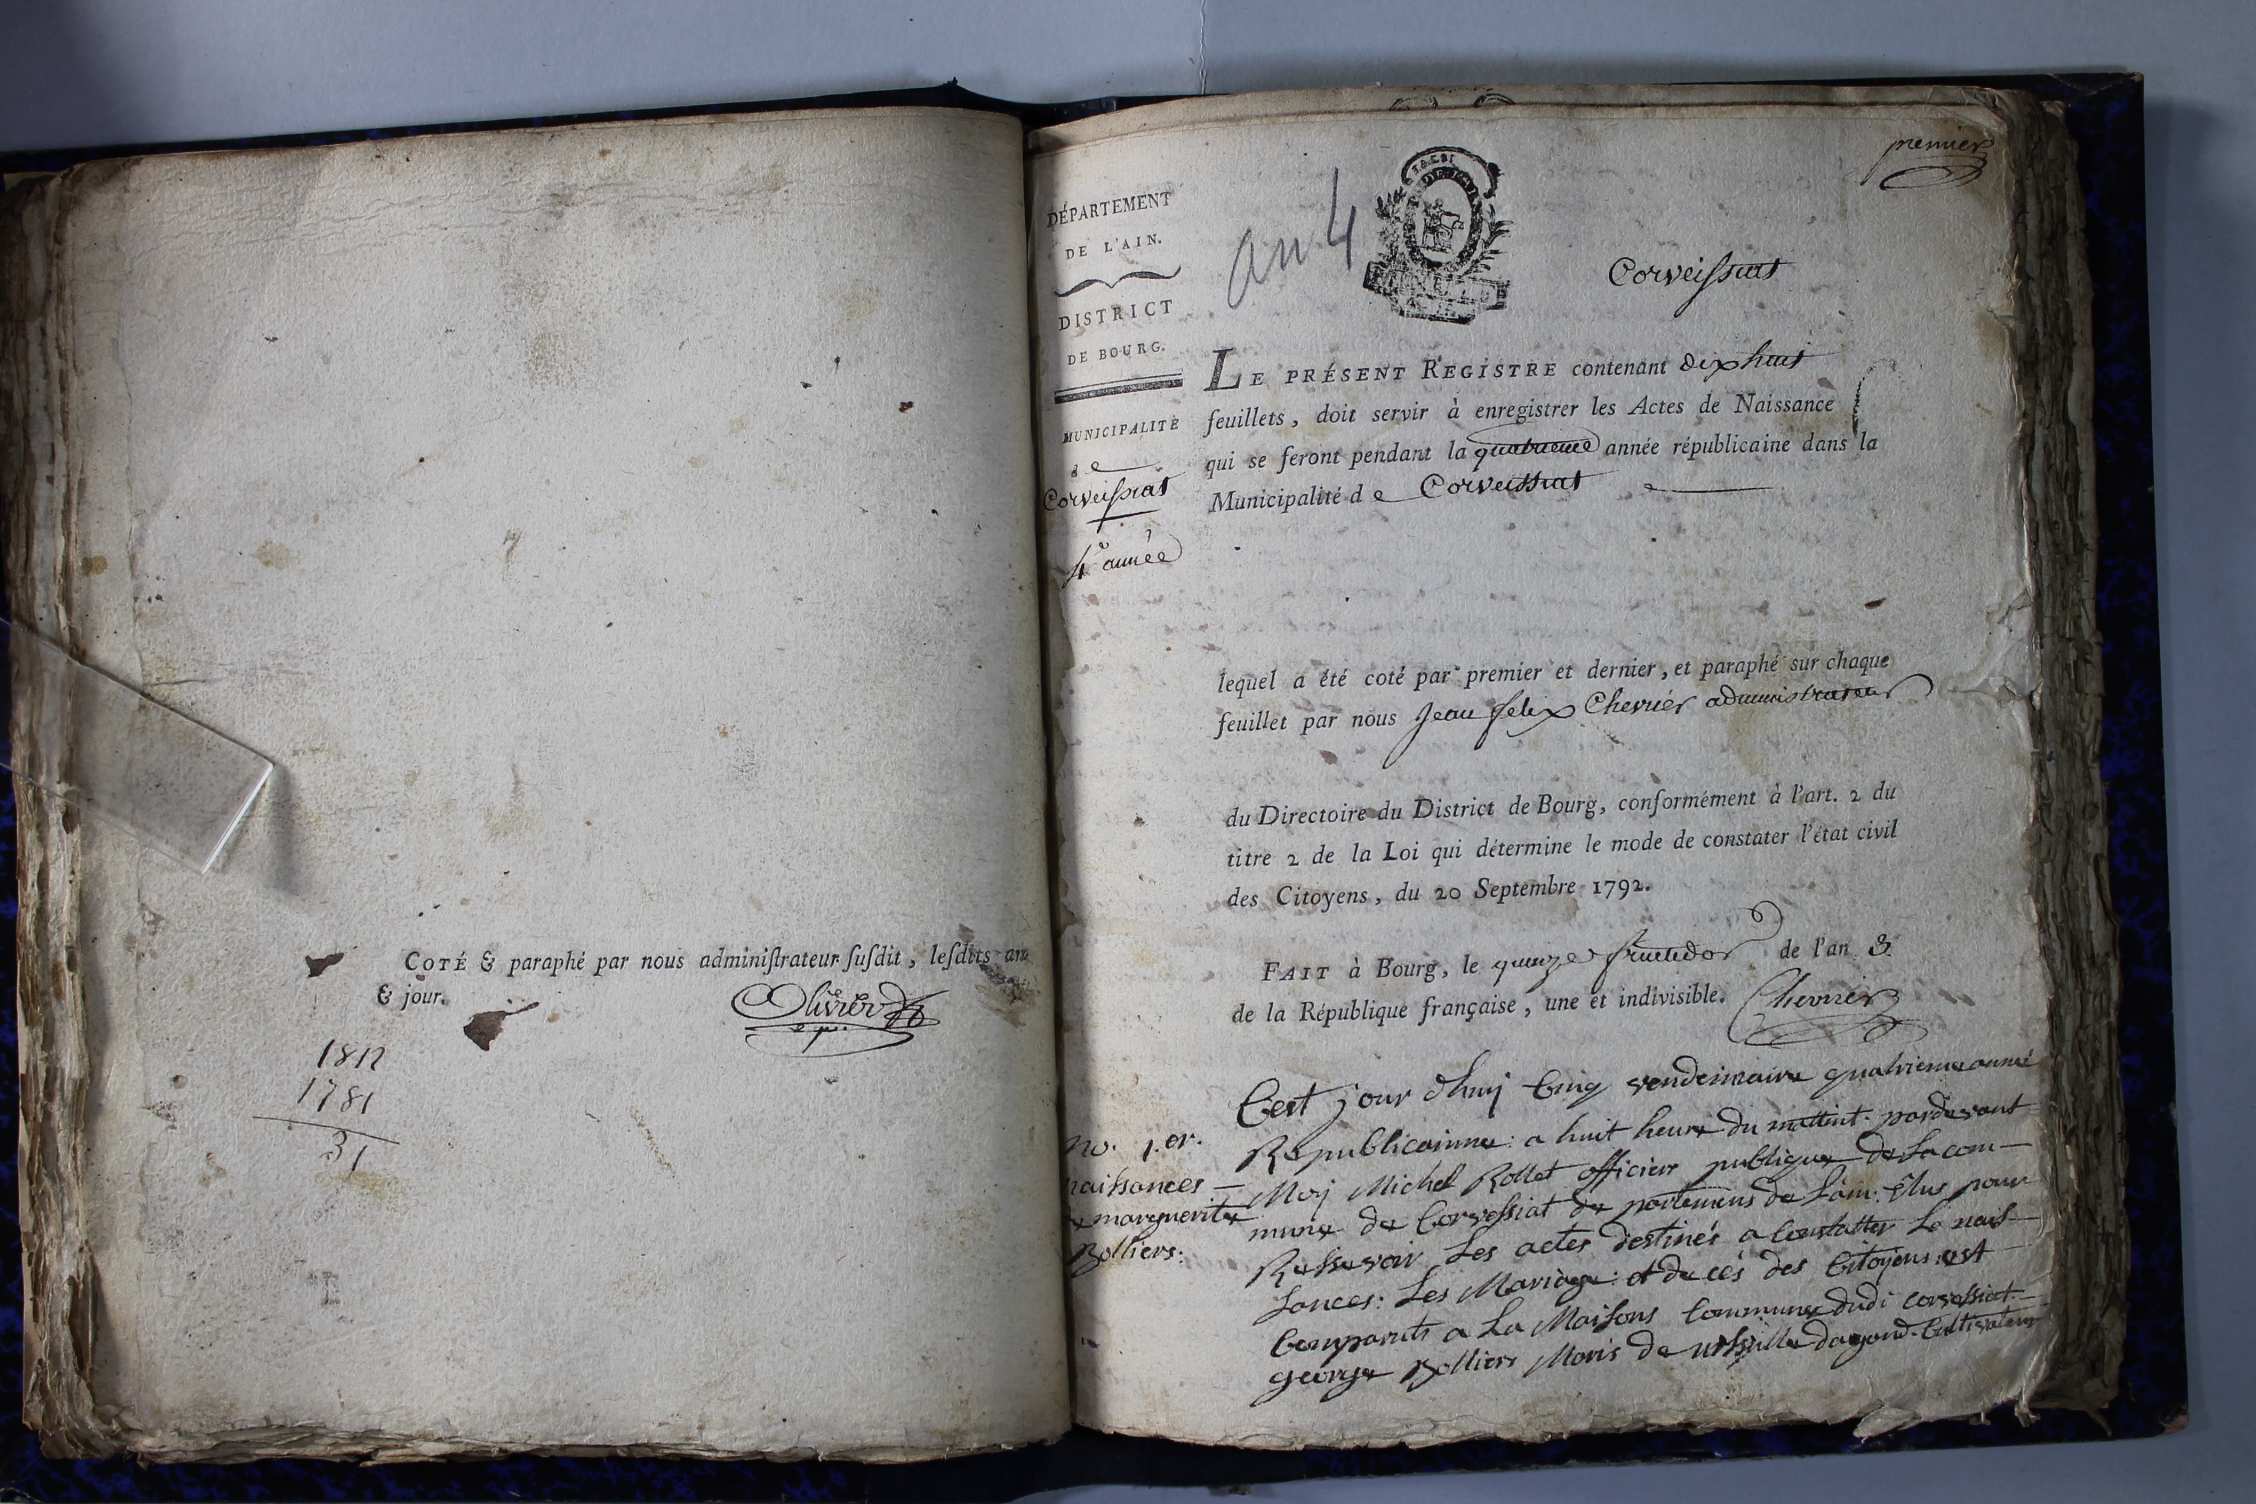 COTÉ & paraphé par nous adminiſtrateur ſuſdit, leſdits an
& jour.
Olivier
1812
1781
31
premier
DÉPARTEMENT
DE L'AIN.
DISTRICT
DE BOURG.
MUNICIPALITÉ
de
Corveissiat
4e année
an 4
Corveissiat
LE PRÉSENT REGISTRE contenant dix huit
feuillets, doit servir à enregistrer les Actes de Naissance
qui se feront pendant la quatrieme année républicaine dans la
Municipalité de Corveissiat
lequel a été coté par premier et dernier, et paraphé sur chaque
feuillet par nous Jean felix Chevrier administrateur
du Directoire du District de Bourg, conformément à l'art. 2 du
titre 2 de la Loi qui détermine le mode de constater l'état civil
des Citoyens, du 20 Septembre 1792.
FAIT à Bourg, le quinze fructidor de l'an 3
de la République française, une et indivisible. Chevrier
no. 1.er.
naissances
de marguerite
Bolliers.
Cest jour dhuj Cinq vendeimaire quatrieme année
Republicainne: a huit heure du mattint. pardevant
Moy Michel Rollet officier publique de La com-
mune de Corvessiat de partemens de Lain. Elus pour
Ressevoir Les actes destinés a Constatter Le nais-
sances: Les Mariage: et de cés des Citoyens: est
Comparuts a La Maisons Commune dudi corvessiat-
george Bolliers Maris de urssulle dagond. Cultivateur